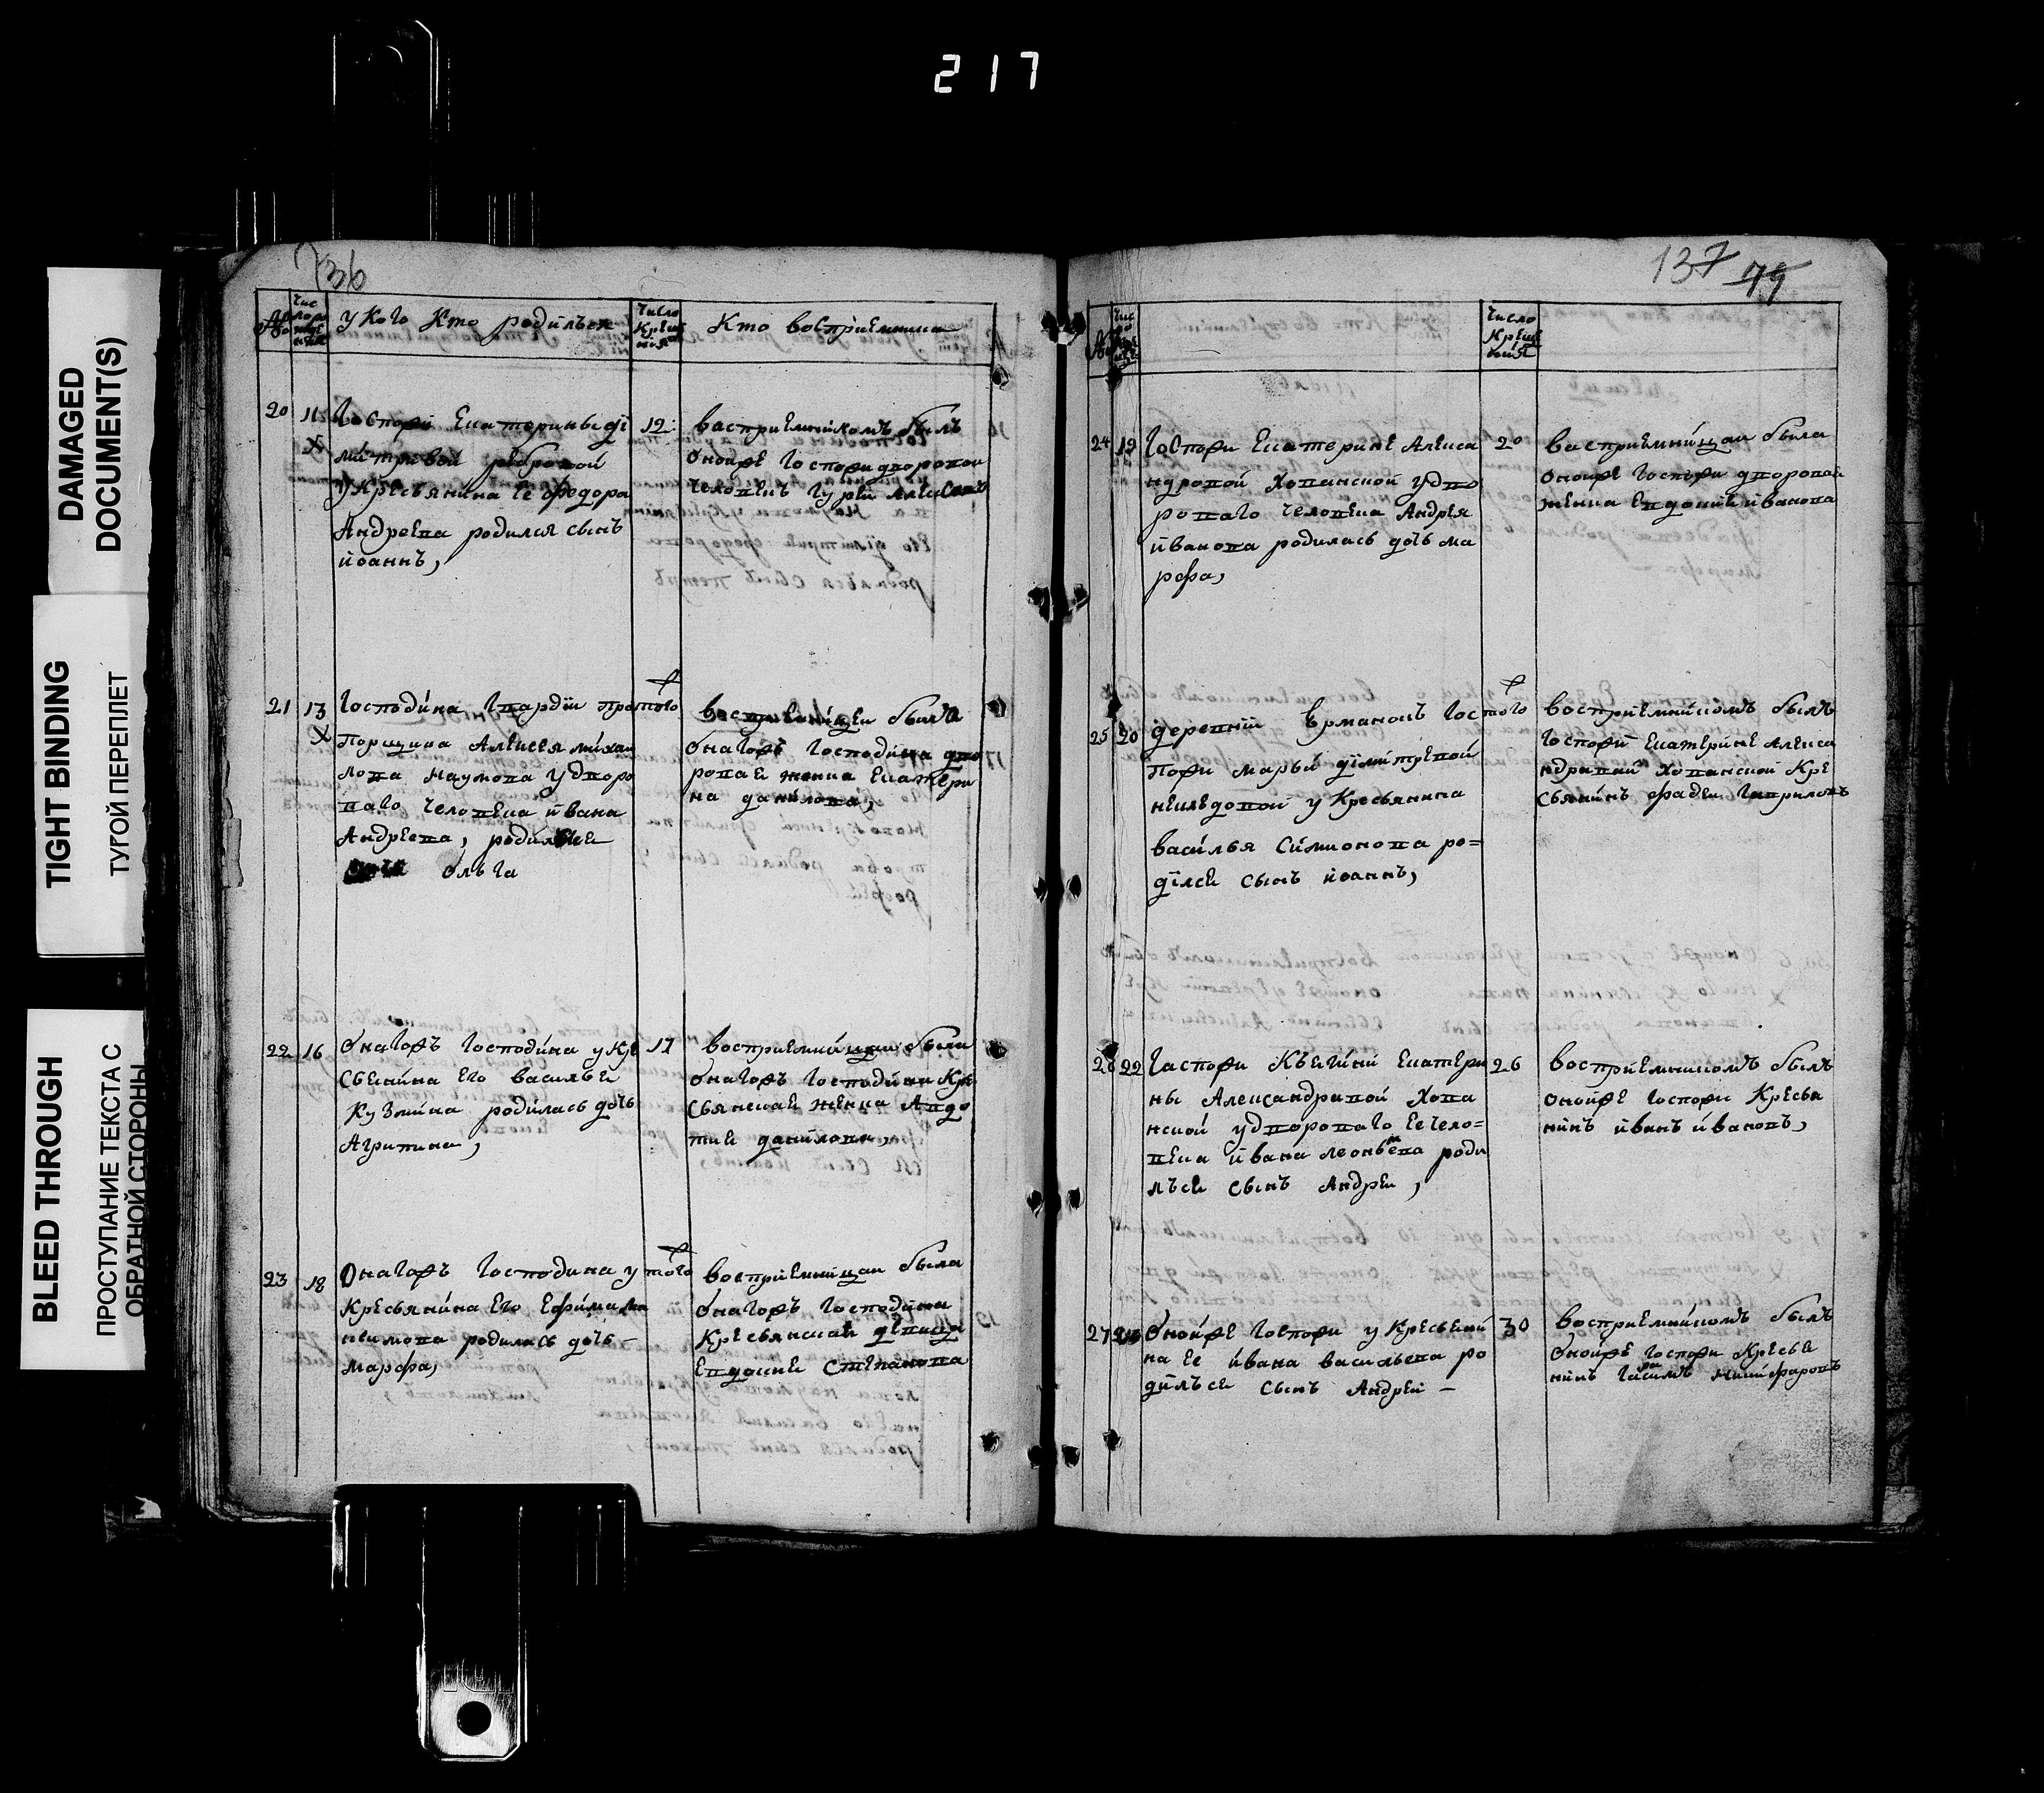 217
DAMAGED
DOCUMENT(S)
TIGHT BINDING
ТУГОЙ ПЕРЕПЛЕТ
BLEED THROUGH
ПРОСТУПАНИЕ ТЕКСТА С
ОБРАТНОЙ СТОРОНЫ
136
у кого кто родился
число
креще
нія
кто воспріемники
20 11
Госпожи Екатерины ді
митривой ребровой
у кресьянина ее федора
Андреева родился сынъ
иоаннъ,
12
васприемникомъ былъ
оноиже Госпожи дворовой
человекъ Гурей
21 13
Господина Гвардіи
порщика Алексея михаи
лова наумова у дворо
ваго человека ивана
Андреева, родилься
Ольга
того
восприемницеи была
онагожъ Господина дво
роваи женка Екатери
на данилова,
22 16
Онагожъ Господина у кре
сьенина его васильеи
кузмина родилась дочь
Агрипина,
17
восприемницаи была
онагожъ Господина кре
сьянскаи женка Авдо
тие данилова,
23 18
Онагожъ Господина у
кресьянина его Ефима ма
ксимова родилась дочь –
марфа,
того
восприемницаи была
онагожъ Господина
кресьянскаи девица
Евдокие Степанова
137 79
число
креще
нія
24 19
Госпожи Екатерине Алекса
ндровой хованской у дво
роваго человека Андрея
иванова родилась дочь ма
рфа,
20
васприемницаи была
оноиже Госпожи дворовой
женка Евдокие иванова
25 20
деревни Ермаковъ Гос
пожи марьи димитревой
неклюдовой у кресьянина
василья Симионова ро=
дился сынъ иоаннъ,
того
восприемникомъ былъ
Госпожи Екатерине Алекса
ндравай хованской кре
сьянинъ фадеи Гавриловъ
26 22
Гаспожи Кнегини Екатери
ны Александравой хова
нской у двороваго ее чело=
века ивана леонтьева роди
лься сынъ Андреи,
26
восприемникомъ былъ
оноиже Госпожи кресья
нинъ иванъ ивановъ,
27
Оноиже Госпожи у кресьени
на ее ивана васильева ро
дилься сынъ Андрей –
30
восприемникомъ былъ
оноиже Госпожи кресье
нинъ никифаровъ